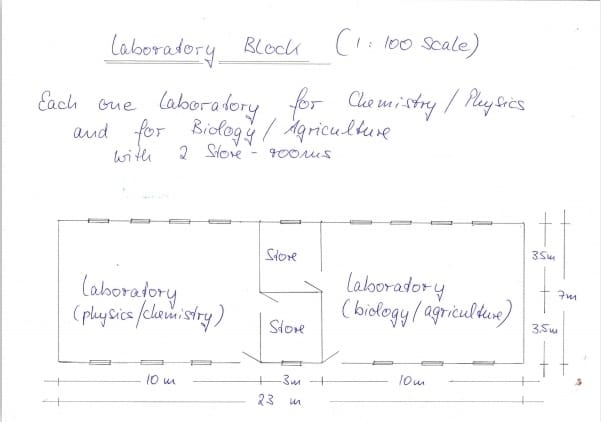 Laboratory Block (1:100 Scale)
Each one Laboratory for Chemistry/Physics
and for Biology/Agriculture
with 2 Store-rooms
Store
Laboratory
(physics/chemistry)
Store
Laboratory
(biology/agriculture)
3.5m
7m
3.5m
10m
3m
10m
23 m